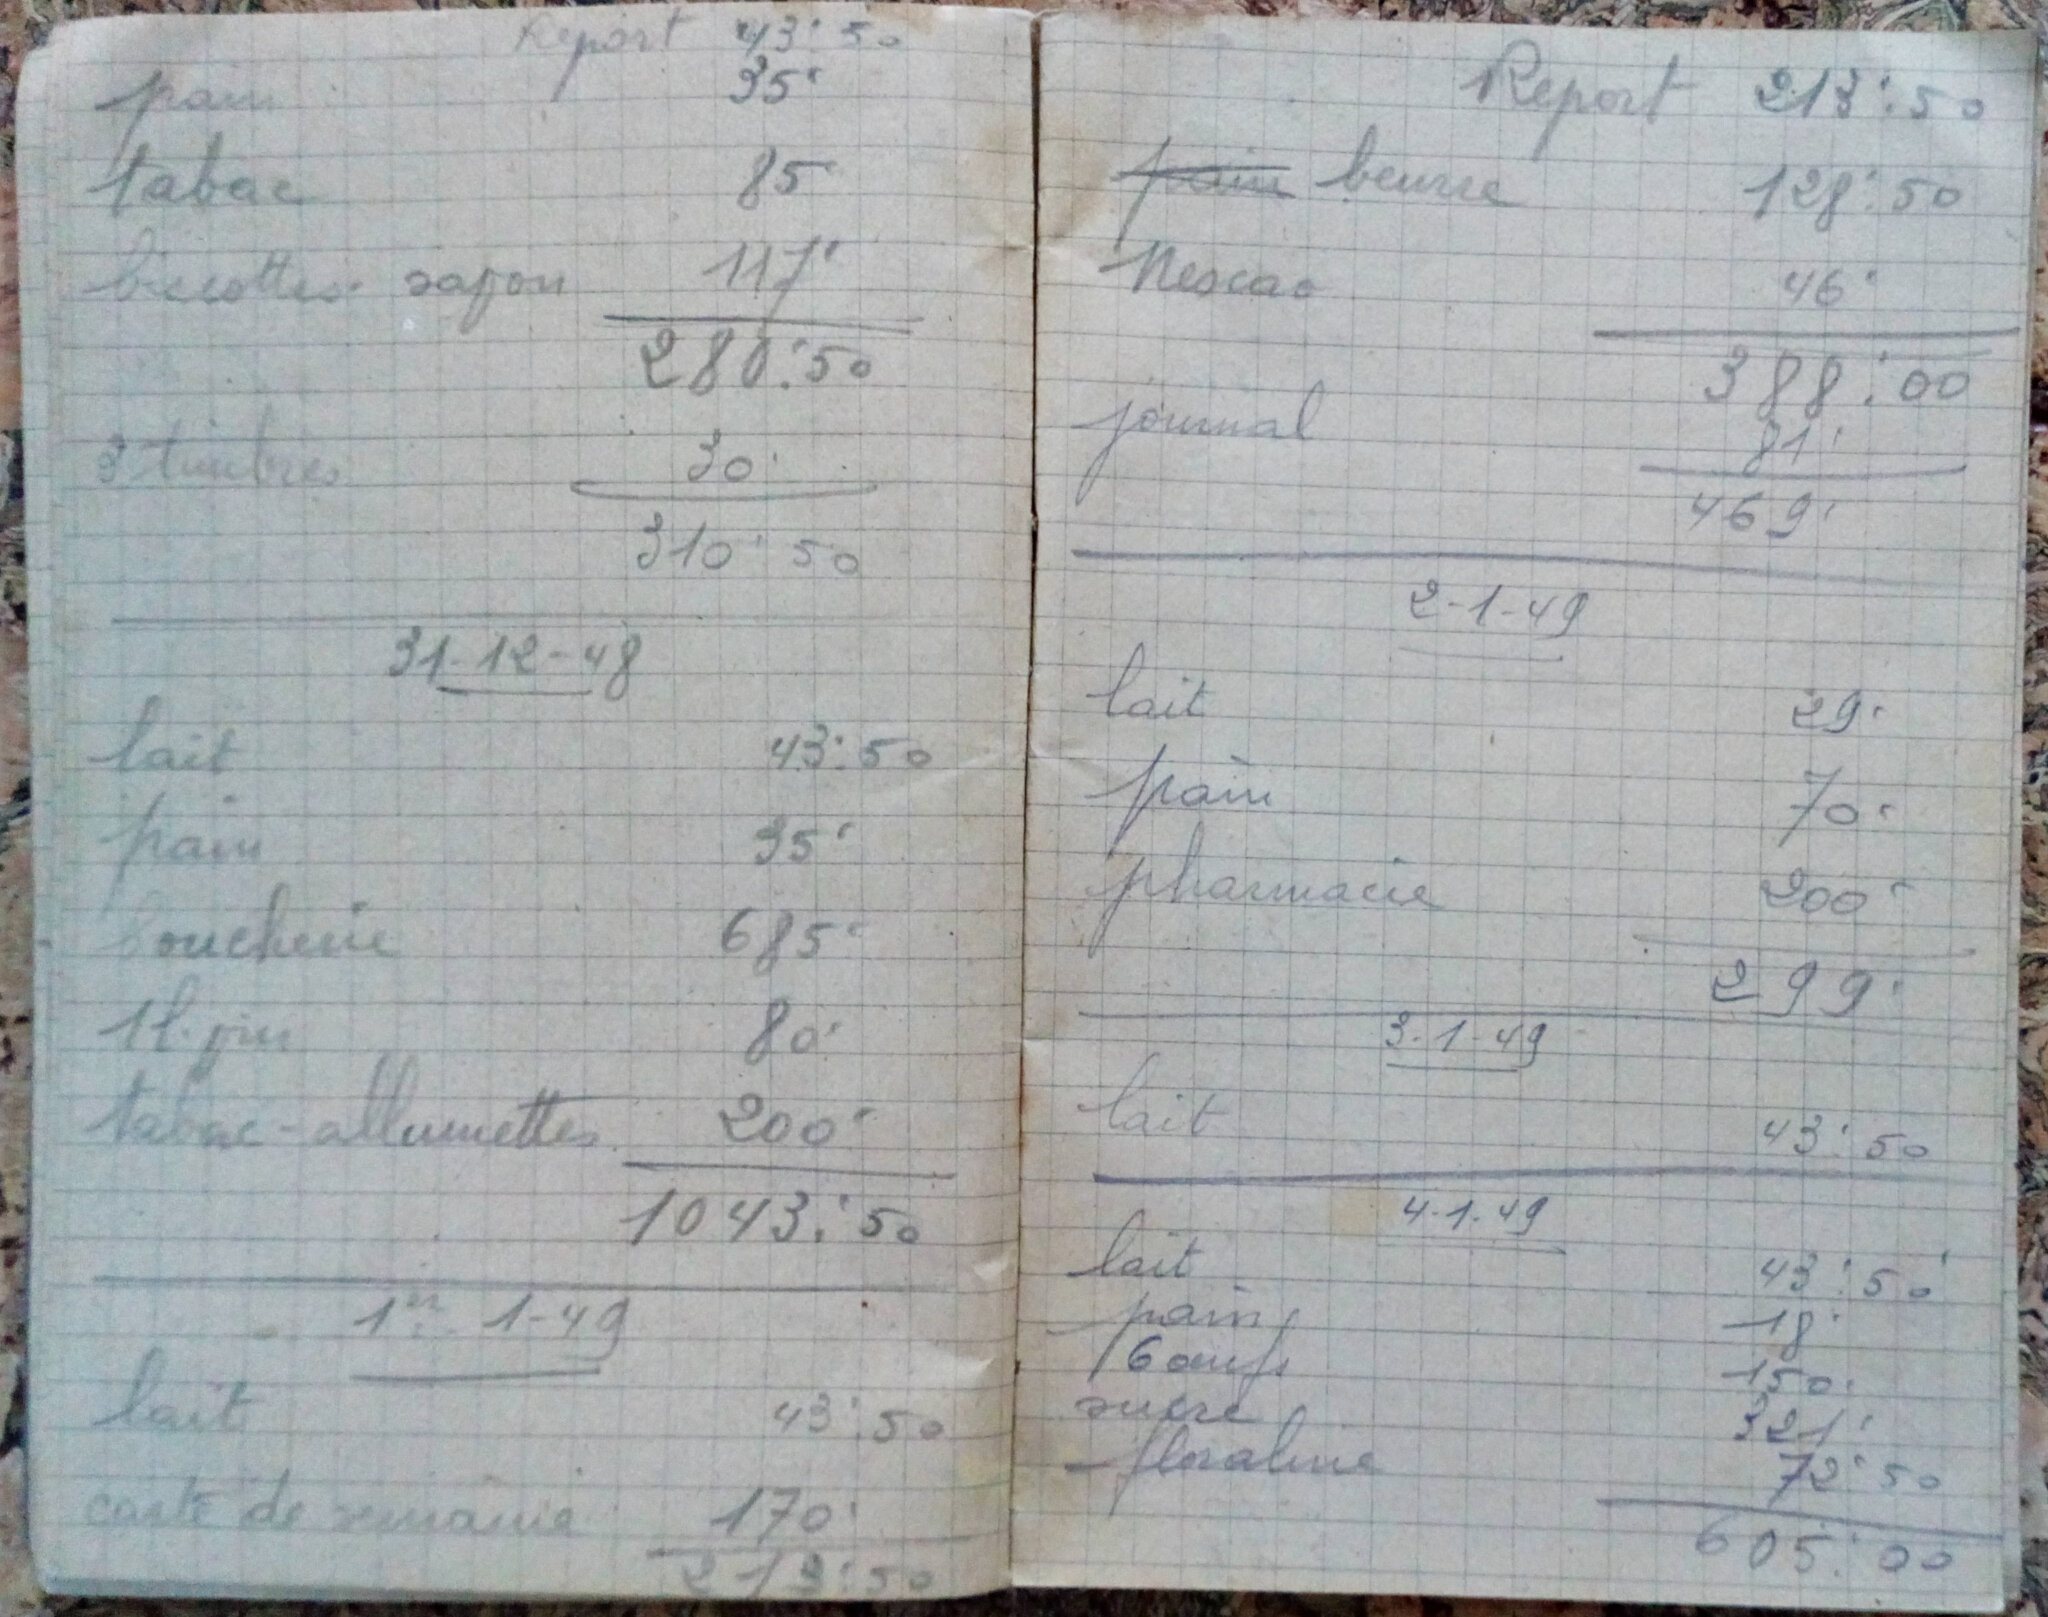 Report 43:50
pain 35'
tabac 85
biscottes savon 117'
280:50
3 timbres 30'
310'50
31-12-48
lait 43:50
pain 35'
boucherie 685'
1 l. vin 80'
tabac-allumettes 200'
1043:50
1er 1-49
lait 43:50
carte de semaine 170'
213:50
Report 213:50
pain beurre 128:50
Nescao 46'
388:00
journal 81'
469'
2-1-49
lait 29'
pain 70'
pharmacie 200'
299'
3-1-49
lait 43:50
4-1-49
lait 43:50
pain 18'
6 œufs 150'
sucre 321'
floraline 72'50
605:00